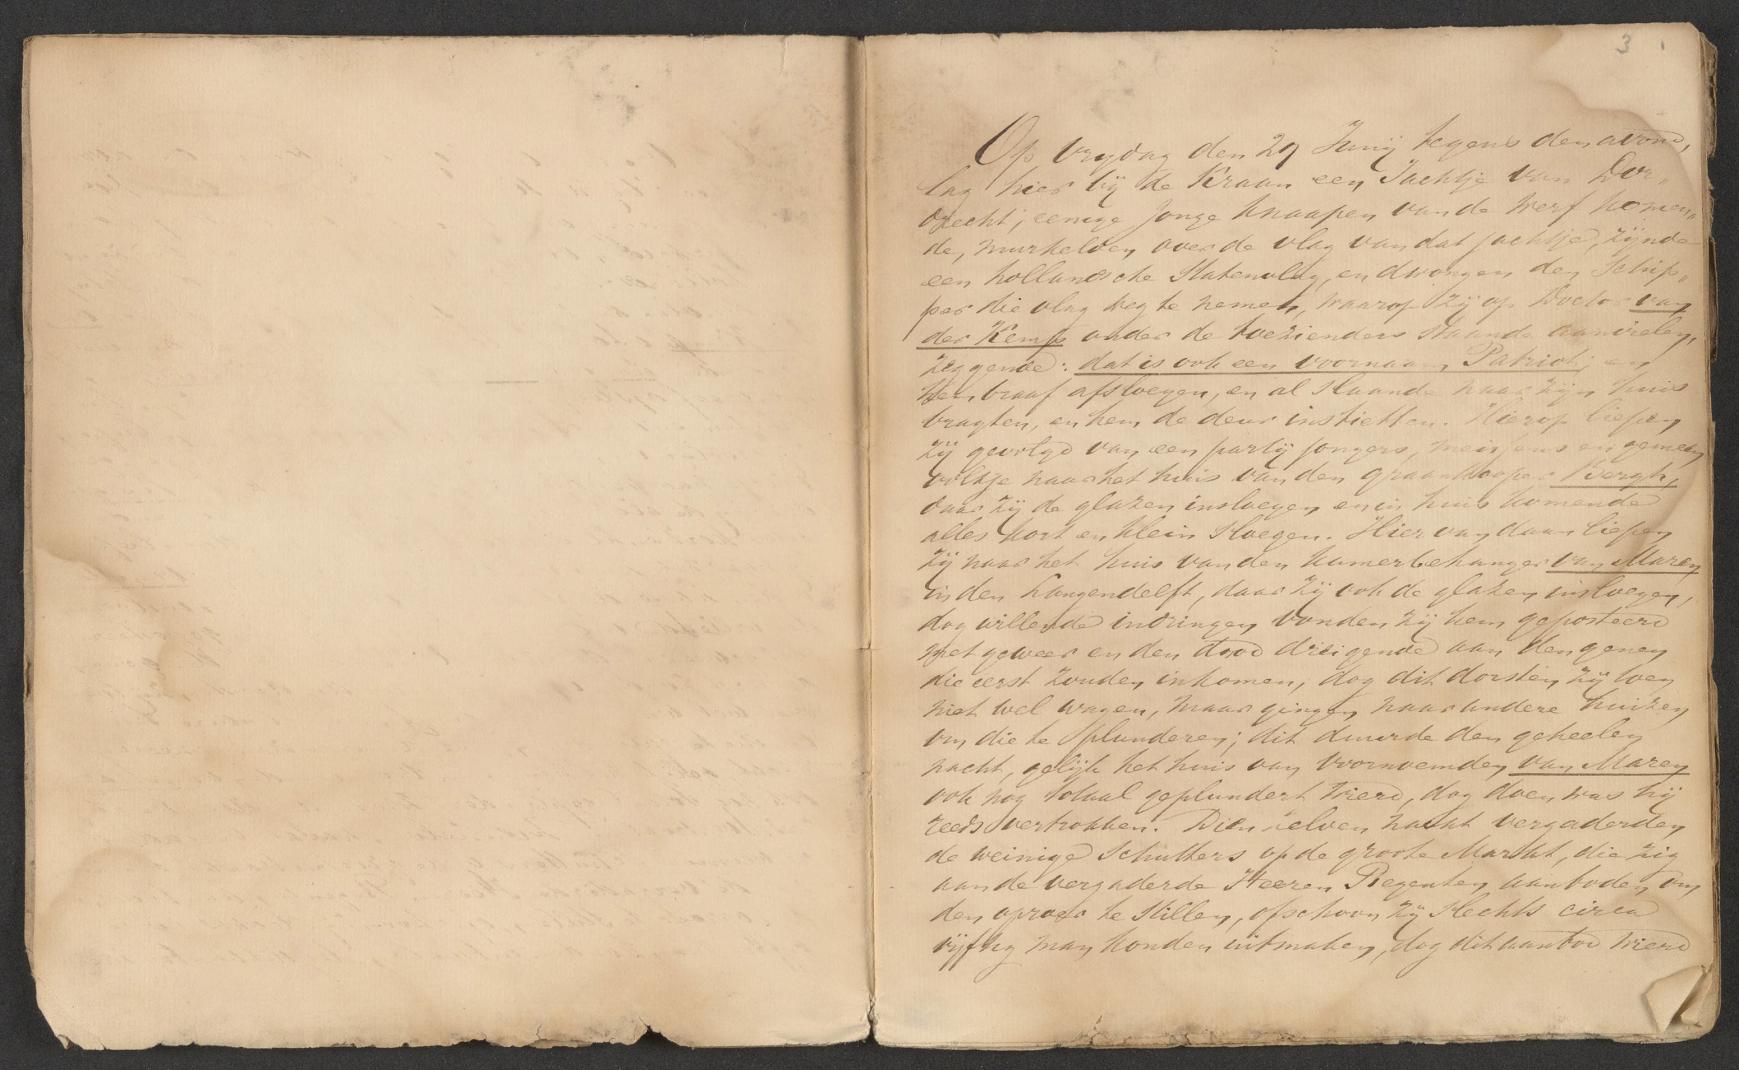 3
Op vrydag den 29 Junij tegens den avond,
lag hier bij de Kraan een Jachtje van Dor,
drecht; eenige jonge knaapen van de werf komen,
de, murkelden over de vlag van dat jachtje, zijnde
een hollandsche Statenvlag, en dwongen den schip,
per die vlag weg te nemen, waarop zij op Doctor van
der Kemp onder de toezienders staande aanvielen,
zeggende: dat is ook een voornaam Patriot; en
hem braaf afsloegen, en al slaande naar zijn huis
bragten, en hem de deur instietten. Hierop liepen
zij gevolgd van een partij jongens, meisjens en gemeen
volkje naar het huis van den graankooper Bergh,
daar zij de glazen insloegen en in huis komende
alles kort en klein sloegen. Hier van daan liepen
zij naar het huis van den kamerbehanger van Maren
in den Langendelft, daar zij ook de glazen insloegen,
dog willende indringen vonden zij hem geposteerd
met geweer en den dood dreigende aan den genen
die eerst zouden inkomen, dog dit dorsten zij toen
niet wel wagen, maar gingen naar andere huizen
om die te plunderen; dit duurde den geheelen
nacht, gelijk het huis van voornoemden van Maren
ook nog totaal geplundert wierd, dog doen was hij
reeds vertrokken. Dien zelven nacht vergaderden
de weinige Schutters op de groote Markt, die zig
aan de vergaderde Heeren Regenten aanboden om
den oproer te stillen, ofschoon zij slechts circa
vijftig man konden uitmaken, dog dit aanbod wierd